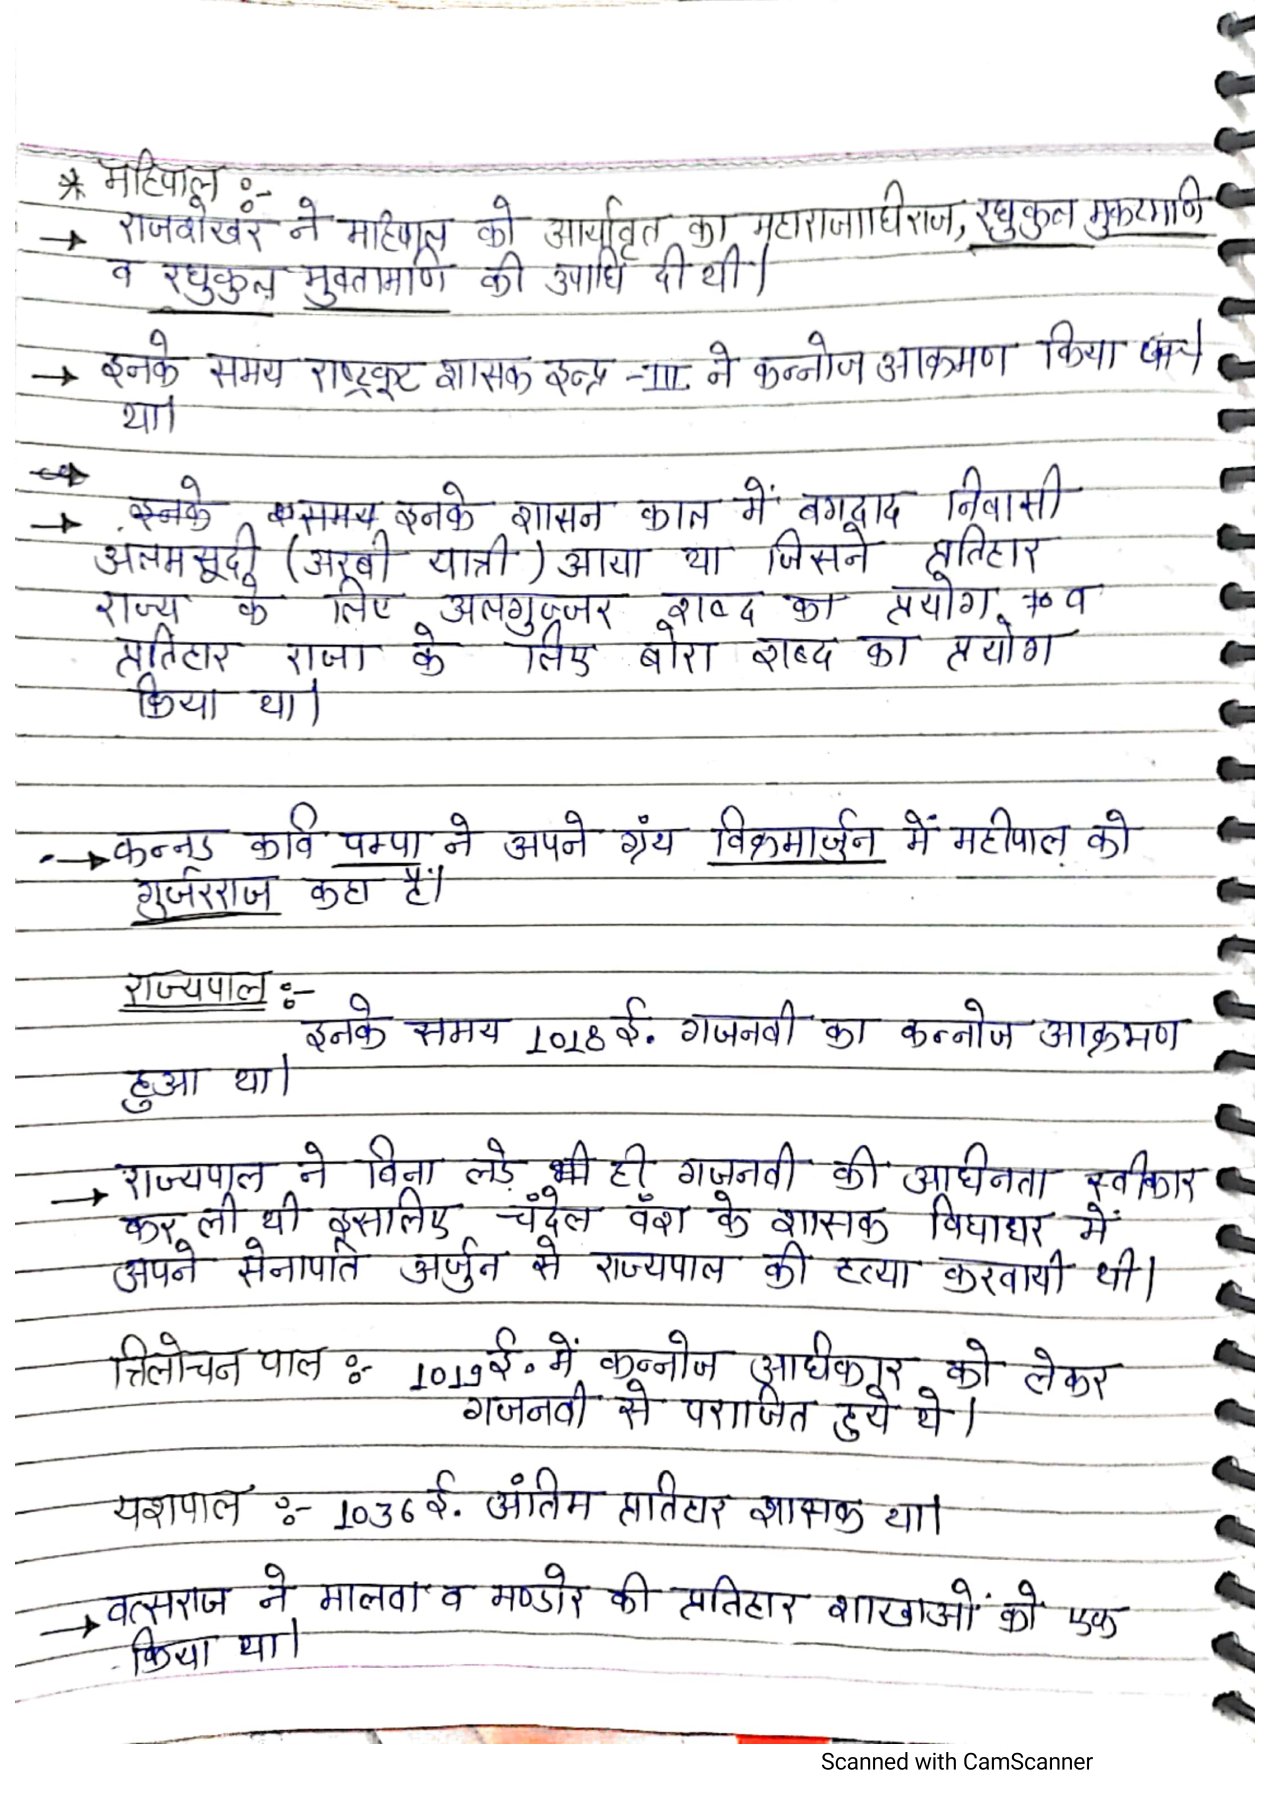 * महिपाल :-
→ राजशेखर ने महिपाल को आर्यावृत का महाराजाधिराज, रघुकुल मुकटमणि
व रघुकुल मुक्तामणि की उपाधि दी थी।
→ इनके समय राष्ट्रकूट शासक इन्द्र -III ने कन्नोज आक्रमण किया
था।
→ इनके समय इनके शासन काल में बगदाद निवासी
अलमसूदी (अरबी यात्री) आया था जिसने प्रतिहार
राज्य के लिए अलगुज्जर शब्द का प्रयोग व
प्रतिहार राजा के लिए बोरा शब्द का प्रयोग
किया था।
→ कन्नड कवि पम्पा ने अपने ग्रंथ विक्रमार्जुन में महीपाल को
गुर्जरराज कहा है।
राज्यपाल :-
इनके समय 1018 ई. गजनवी का कन्नोज आक्रमण
हुआ था।
→ राज्यपाल ने बिना लड़े ही गजनवी की आधिनता स्वीकार
कर ली थी इसलिए चँदेल वँश के शासक विधाधर में
अपने सेनापति अर्जुन से राज्यपाल की हत्या करवायी थी।
त्रिलोचन पाल :- 1019 ई. में कन्नोज आधिकार को लेकर
गजनवी से पराजित हुये थे।
यशपाल :- 1036 ई. अंतिम प्रतिहार शासक था।
→ वत्सराज ने मालवा व मण्डोर की प्रतिहार शाखाओं को एक
किया था।
Scanned with CamScanner